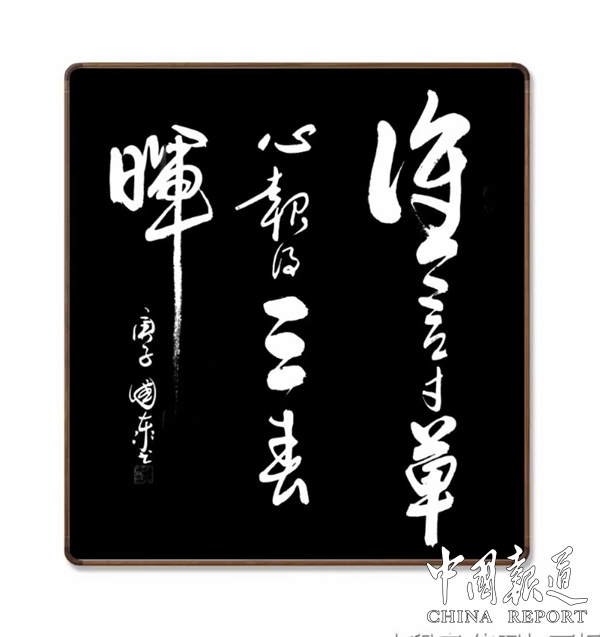 谁言寸草
心报得三春
晖
庚子 国东书
中国报道
CHINA REPORT